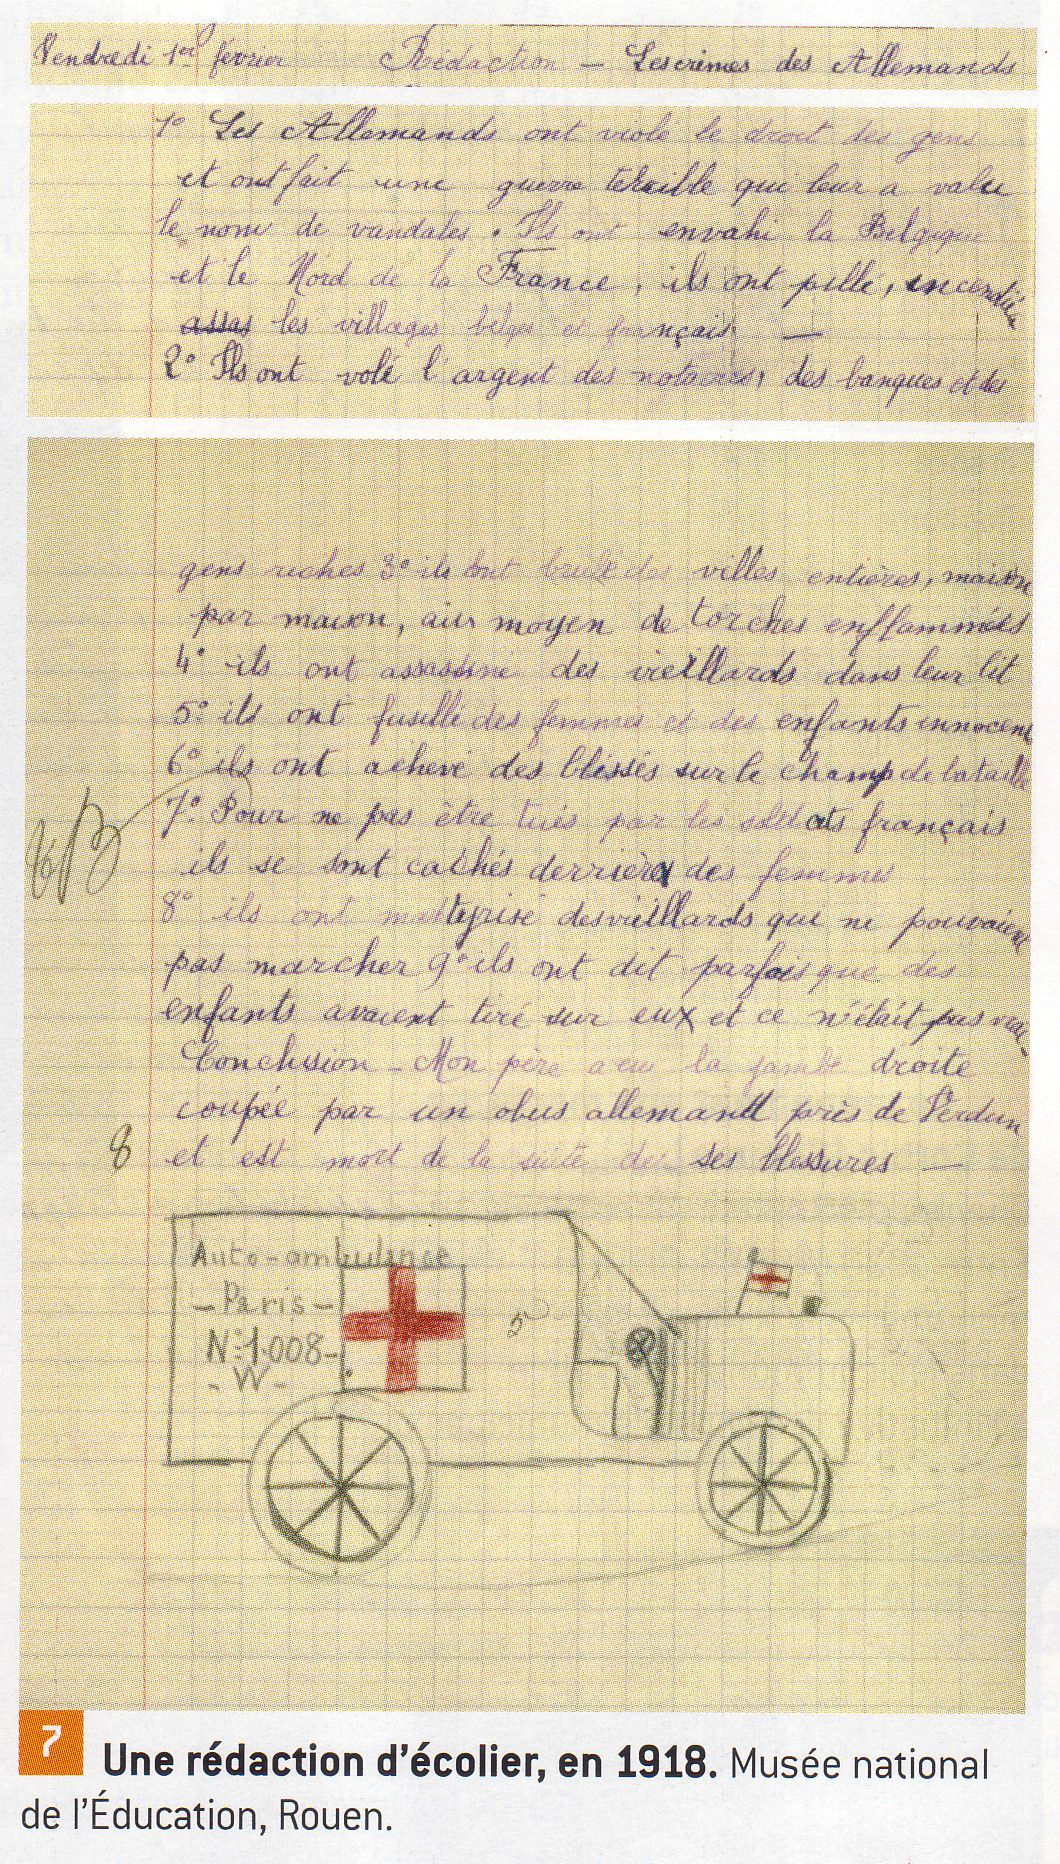 Vendredi 1er février Rédaction – Les crimes des Allemands
1° Les Allemands ont violé le droit des gens
et ont fait une guerre terrible qui leur a valu
le nom de vandales. Ils ont envahi la Belgique
et le Nord de la France, ils ont pillé, incendié
assas les villages belges et français —
2° Ils ont volé l'argent des notaires, des banques et des
gens riches 3° ils ont brulé des villes entières, maison
par maison, au moyen de torches enflammées
4° ils ont assassiné des vieillards dans leur lit
5° ils ont fusillé des femmes et des enfants innocent
6° ils ont achevé des blessés sur le champ de bataille
7° Pour ne pas être tués par les soldats français
ils se sont cachés derrière des femmes
8° ils ont desvieillards que ne pouvaient
pas marcher 9° ils ont dit parfois que des
enfants avaient tiré sur eux et ce n'était pas vrai-
Conclusion – Mon père a eu la jambe droite
coupée par un obus allemand près de Verdun
8 et est mort de la suite de ses blessures —
Auto-ambulance
- Paris -
N° 1.008 -
- W -
5
7 Une rédaction d'écolier, en 1918. Musée national
de l'Éducation, Rouen.